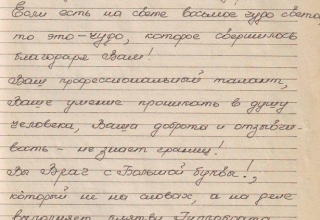 Если есть на свете восьмое чудо света,
то это - чудо, которое свершилось
благодаря Вам!
Ваш профессиональный талант,
Ваше умение проникать в душу
человека, Ваша доброта и отзывчи-
вость - не знает границ!
Вы Врач с Большой буквы!,
который не на словах, а на деле
выполняет клятву Гиппократа